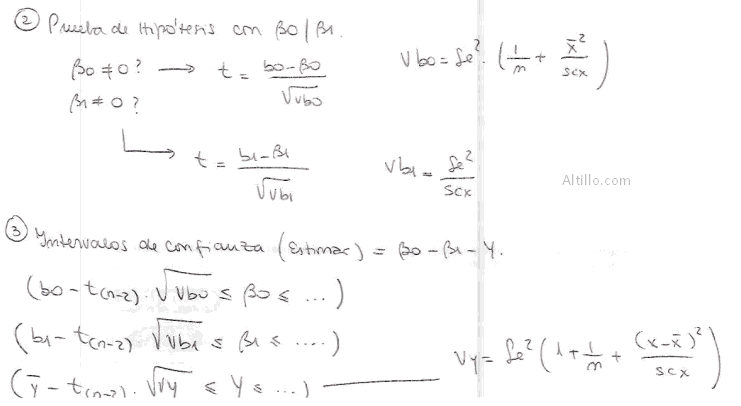 ② Prueba de Hipótesis con β0/β1.
β0 ≠ 0? → t = (b0 - β0) / √Vb0
Vb0 = Se². (1/n + x̄²/scx)
β1 ≠ 0?
→ t = (b1 - β1) / √Vb1
Vb1 = Se²/scx
Altillo.com
③ Intervalos de confianza (Estimar) = β0 - β1 - Y.
(b0 - t(n-2). √Vb0 ≤ β0 ≤ ...)
(b1 - t(n-2) √Vb1 ≤ β1 ≤ ....)
(ȳ - t(n-2). √Vy ≤ Y ≤ ...)
Vy = Se² (1 + 1/n + (x - x̄)²/scx)